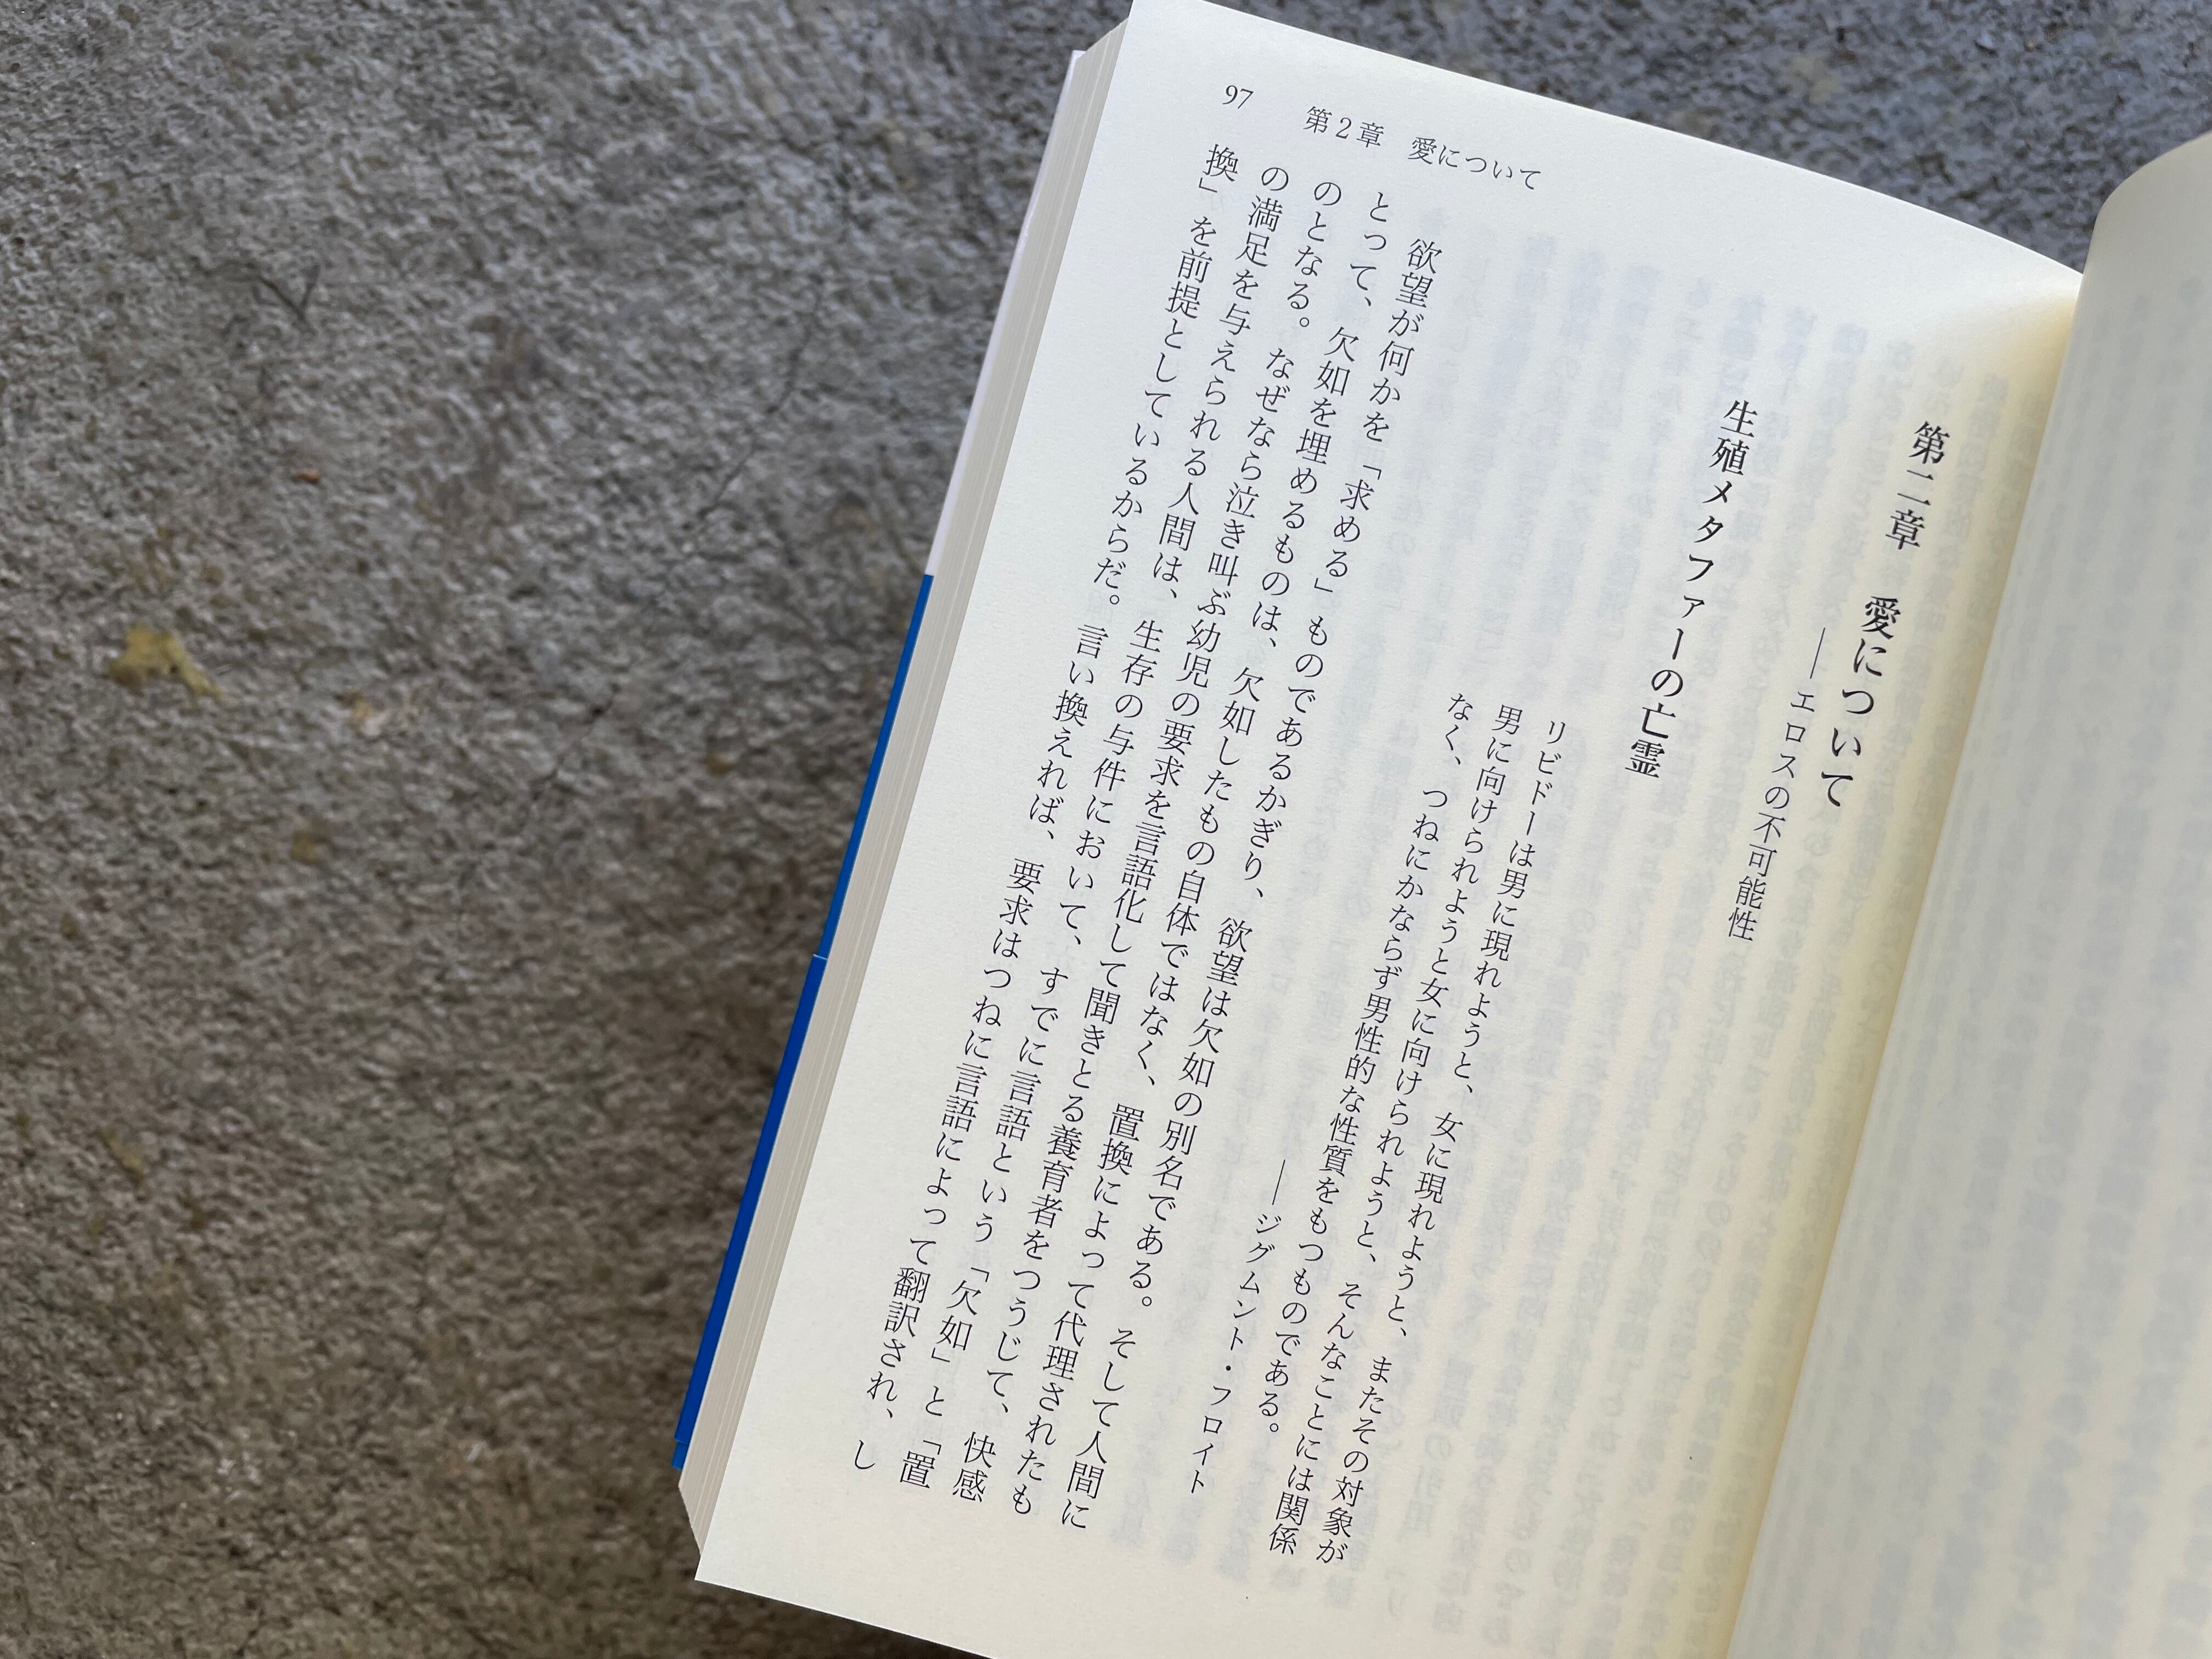 97　第2章　愛について
第二章　愛について
——エロスの不可能性
生殖メタファーの亡霊
リビドーは男に現れようと、女に現れようと、またその対象が
男に向けられようと女に向けられようと、そんなことには関係
なく、つねにかならず男性的な性質をもつものである。
——ジグムント・フロイト
欲望が何かを「求める」ものであるかぎり、欲望は欠如の別名である。そして人間に
とって、欠如を埋めるものは、欠如したもの自体ではなく、置換によって代理されたも
のとなる。なぜなら泣き叫ぶ幼児の要求を言語化して聞きとる養育者をつうじて、快感
の満足を与えられる人間は、生存の与件において、すでに言語という「欠如」と「置
換」を前提としているからだ。言い換えれば、要求はつねに言語によって翻訳され、し